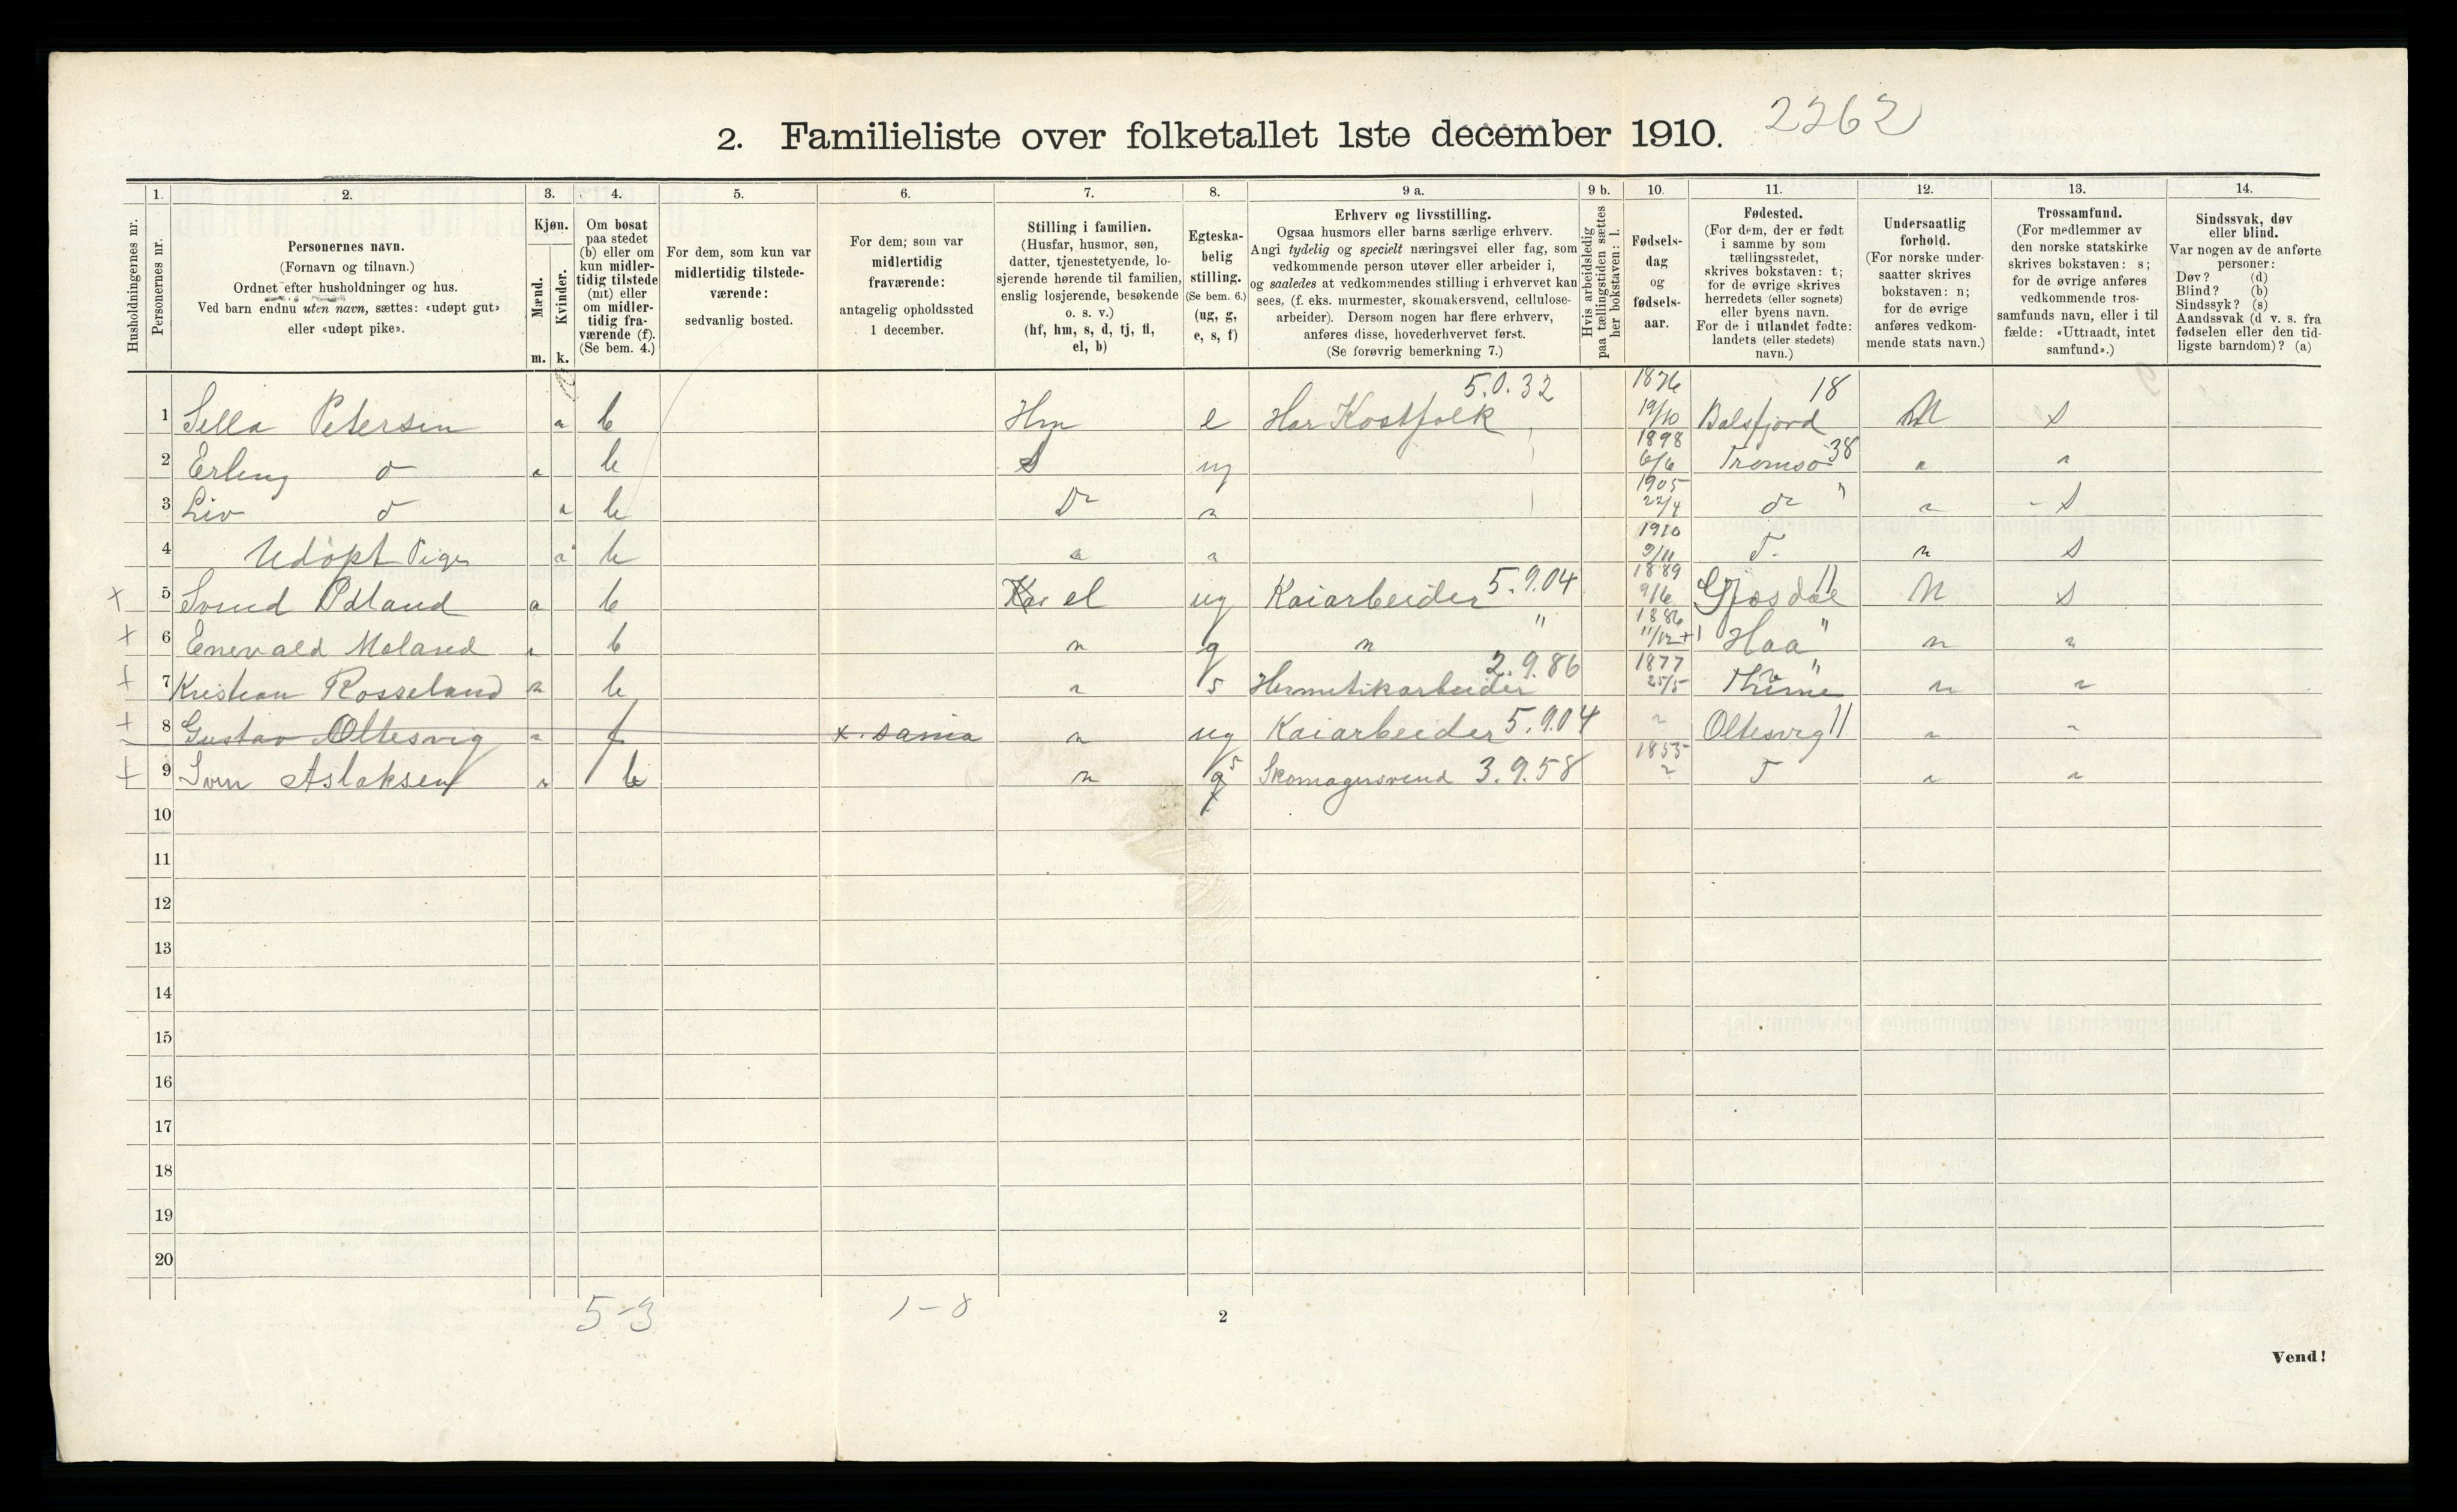 2. Familieliste over folketallet 1ste december 1910. 2262
1. 2. 3. 4. 5. 6. 7. 8. 9 a. 9 b. 10. 11. 12. 13. 14.
Husholdningernes nr.
Personernes nr.
Personernes navn.
(Fornavn og tilnavn.)
Ordnet efter husholdninger og hus.
Ved barn endnu uten navn, sættes: «udøpt gut»
eller «udøpt pike».
Kjøn.
Mænd.
Kvinder.
m. k.
Om bosat
paa stedet
(b) eller om
kun midler-
tidig tilstede
(mt) eller
om midler-
tidig fra-
værende (f).
(Se bem. 4.)
For dem, som kun var
midlertidig tilstede-
værende:
sedvanlig bosted.
For dem, som var
midlertidig
fraværende:
antagelig opholdssted
1 december.
Stilling i familien.
(Husfar, husmor, søn,
datter, tjenestetyende, lo-
sjerende hørende til familien,
enslig losjerende, besøkende
o. s. v.)
(hf, hm, s, d, tj, fl,
el, b)
Egteska-
belig
stilling.
(Se bem. 6.)
(ug, g,
e, s, f)
Erhverv og livsstilling.
Ogsaa husmors eller barns særlige erhverv.
Angi tydelig og specielt næringsvei eller fag, som
vedkommende person utøver eller arbeider i,
og saaledes at vedkommendes stilling i erhvervet kan
sees, (f. eks. murmester, skomakersvend, cellulose-
arbeider). Dersom nogen har flere erhverv,
anføres disse, hovederhvervet først.
(Se forøvrig bemerkning 7.)
Hvis arbeidsledig
paa tællingstiden sættes
her bokstaven: l.
Fødsels-
dag
og
fødsels-
aar.
Fødested.
(For dem, der er født
i samme by som
tællingsstedet,
skrives bokstaven: t;
for de øvrige skrives
herredets (eller sognets)
eller byens navn.
For de i utlandet fødte:
landets (eller stedets)
navn.)
Undersaatlig
forhold.
(For norske under-
saatter skrives
bokstaven: n;
for de øvrige
anføres vedkom-
mende stats navn.)
Trossamfund.
(For medlemmer av
den norske statskirke
skrives bokstaven: s;
for de øvrige anføres
vedkommende tros-
samfunds navn, eller i til
fælde: «Uttraadt, intet
samfund».)
Sindssvak, døv
eller blind.
Var nogen av de anførte
personer:
Døv? (d)
Blind? (b)
Sindssyk? (s)
Aandssvak (d v. s. fra
fødselen eller den tid-
ligste barndom)? (a)
1 Sella Petersen " b Hm e Har Kostfolk 5.0.32 1876 19/10 Balsfjord 18 N S
2 Erling do " b S ug 1898 6/6 Tromsø 38 " "
3 Liv do " b D " 1905 22/4 do " " S
4 Udøpt Pige " b " " 1910 9/11 T. n S
x 5 Svend Odland " b el ug Kaiarbeider 5.9.04 1889 9/6 Gjesdal 11 N S
+ 6 Enevald Moland " b " g " " 1886 11/12 Haa " " "
+ 7 Kristian Rosseland " b " s Hermetikarbeider 2.9.86 1877 25/5 Thime " " "
+ 8 Gustav Oltesvig " f x. sania " ug Kaiarbeider 5.9.04 " Oltesvig 11 " "
+ 9 Sven Aslaksen " b " s Skomagersvend 3.9.58 1853 T " "
10
11
12
13
14
15
16
17
18
19
20
5-3 1-8 2
Vend!